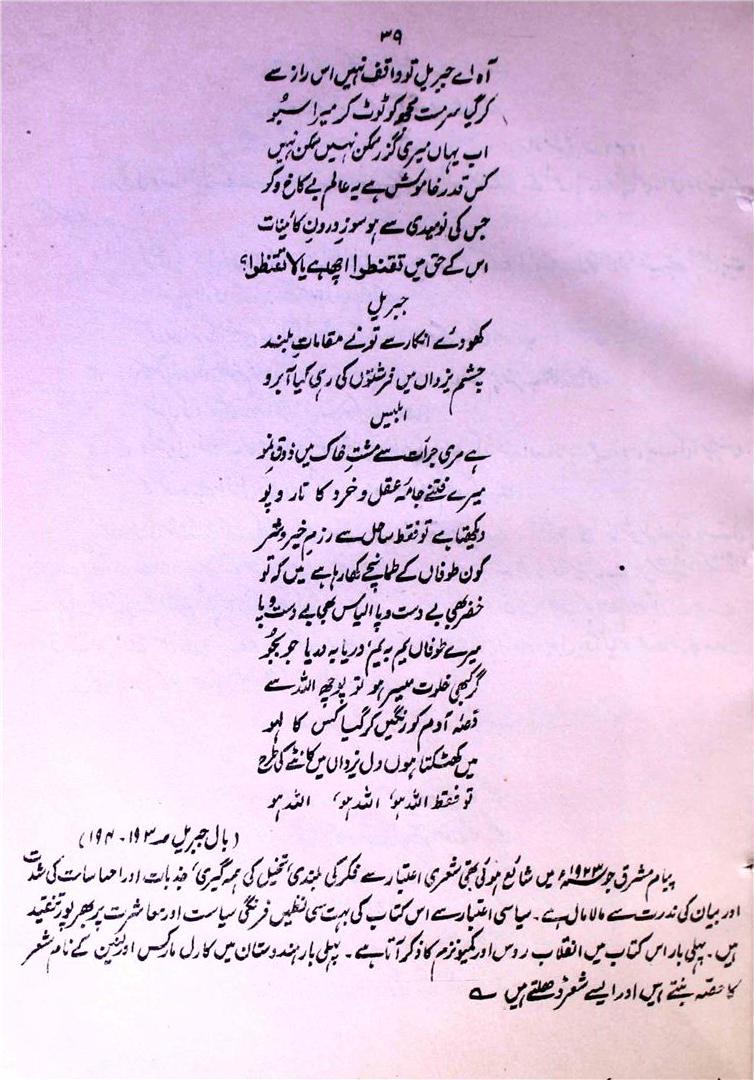 ۳۹
آہ اے جبریل تو واقف نہیں اس راز سے
کر گیا سرمست مجھ کو ٹوٹ کر میرا سبُو
اب یہاں میری گزر ممکن نہیں ممکن نہیں
کس قدر خاموش ہے یہ عالم بے کاخ و کو
جس کی نومیدی سے ہو سوز درونِ کائنات
اس کے حق میں تقنطوا اچھا ہے یا لا تقنطوا؟
جبریل
کھو دئے انکار سے تونے مقاماتِ بلند
چشم یزداں میں فرشتوں کی رہی کیا آبرو
ابلیس
ہے مری جرأت سے مشتِ خاک میں ذوق نمو
میرے فتنے جامۂ عقل و خرد کا تار و پو
دیکھتا ہے تو فقط ساحل سے رزمِ خیر و شر
کون طوفاں کے طمانچے کھا رہا ہے میں کہ تو
خضر بھی بے دست و پا الیاس بھی بے دست و پا
میرے طوفاں یم بہ یم دریا بہ دریا جو بجو
گر کبھی خلوت میسر ہو تو پوچھ اللہ سے
قصۂ آدم کو رنگیں کر گیا کس کا لہو
میں کھٹکتا ہوں دل یزداں میں کانٹے کی طرح
تو فقط اللہ ہو، اللہ ہو، اللہ ہو
(بال جبریل صہ ۱۹۳-۱۹۴)
پیام مشرق جو ۱۹۲۳ء میں شائع ہوئی تھی شعری اعتبار سے فکر کی بلندی، تخیل کی ہمہ گیری، جذبات اور احساسات کی شدت
اور بیان کی ندرت سے مالا مال ہے۔ سیاسی اعتبار سے اس کتاب کی بہت سی نظمیں فرنگی سیاست اور معاشرت پر بھرپور تنقید
ہیں۔ پہلی بار اس کتاب میں انقلاب روس اور کمیونزم کا ذکر آتا ہے۔ پہلی بار ہندوستان میں کارل مارکس اور لینن کے نام شعر
کا حصّہ بنتے ہیں اور ایسے شعر ڈھلتے ہیں ؎